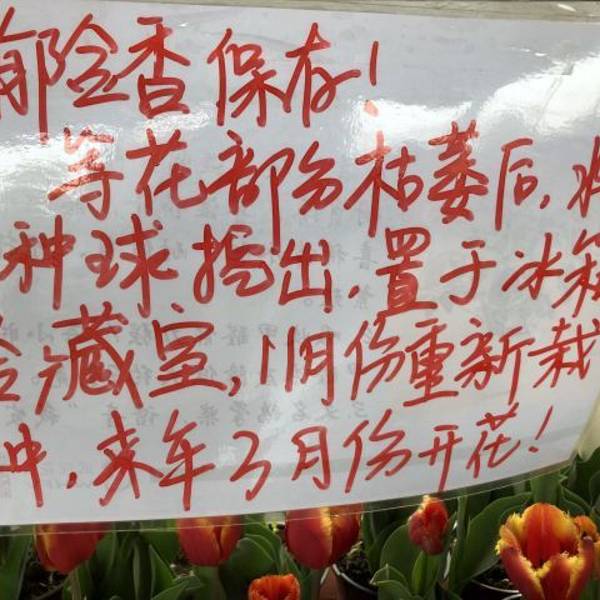 郁险香保存！
等花部分枯萎后，将
种球挖出，置于冰箱
冷藏室，11月份重新栽
种，来年3月份开花！